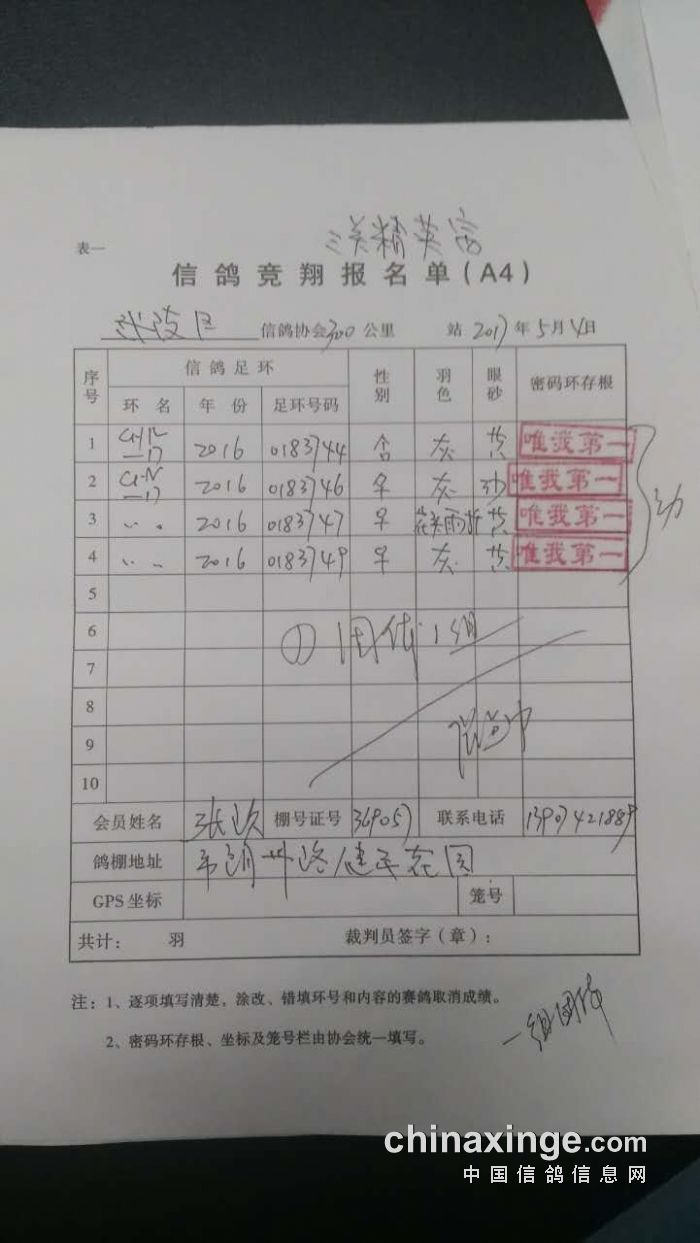 表一
三关精英赛
信鸽竞翔报名单(A4)
信鸽协会300公里 站 2017年5月4日
序号 信鸽足环 性别 羽色 眼砂 密码环存根
环名 年份 足环号码
1 2016 0183744 灰 黄 唯我第一
2 2016 0183746 灰 砂 唯我第一
3 〃 2016 0183747 黄 唯我第一
4 〃 2016 0183749 灰 黄 唯我第一
幼
5
6
① 团体1组
7
8
9
10
会员姓名 张 棚号证号 369057 联系电话
鸽棚地址 路健民花园
GPS坐标 笼号
共计: 羽 裁判员签字(章):
注:1、逐项填写清楚,涂改、错填环号和内容的赛鸽取消成绩。
2、密码环存根、坐标及笼号栏由协会统一填写。
一组团体
chinaxinge.com
中国信鸽信息网